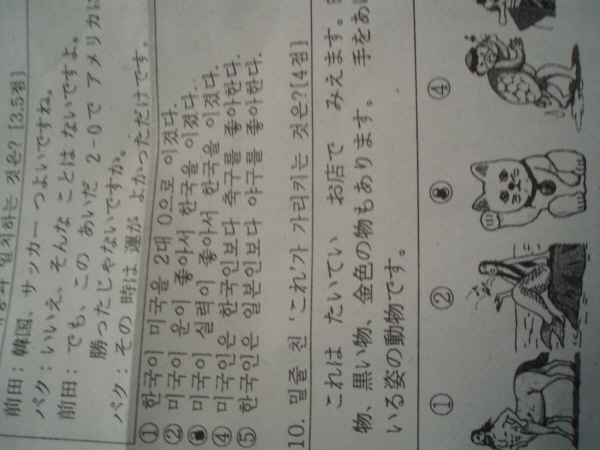 일치하는 것은? [3.5점]
前田：韓国、サッカー つよいですね。
パク：いいえ、そんな ことは ないですよ。
前田：でも、この あいだ 2-0で アメリカに
勝ったじゃないですか。
パク：その 時は 運が よかっただけです。
① 한국이 미국을 2대 0으로 이겼다.
② 미국이 운이 좋아서 한국을 이겼다.
③ 미국이 실력이 좋아서 한국을 이겼다.
④ 미국인은 한국인보다 축구를 좋아한다.
⑤ 한국인은 일본인보다 야구를 좋아한다.
10. 밑줄 친 'これ'가 가리키는 것은?[4점]
これは たいてい お店で みえます。
物、黒い物、金色の物もあります。 手をあ
いる姿の動物です。
① ② ③ ④